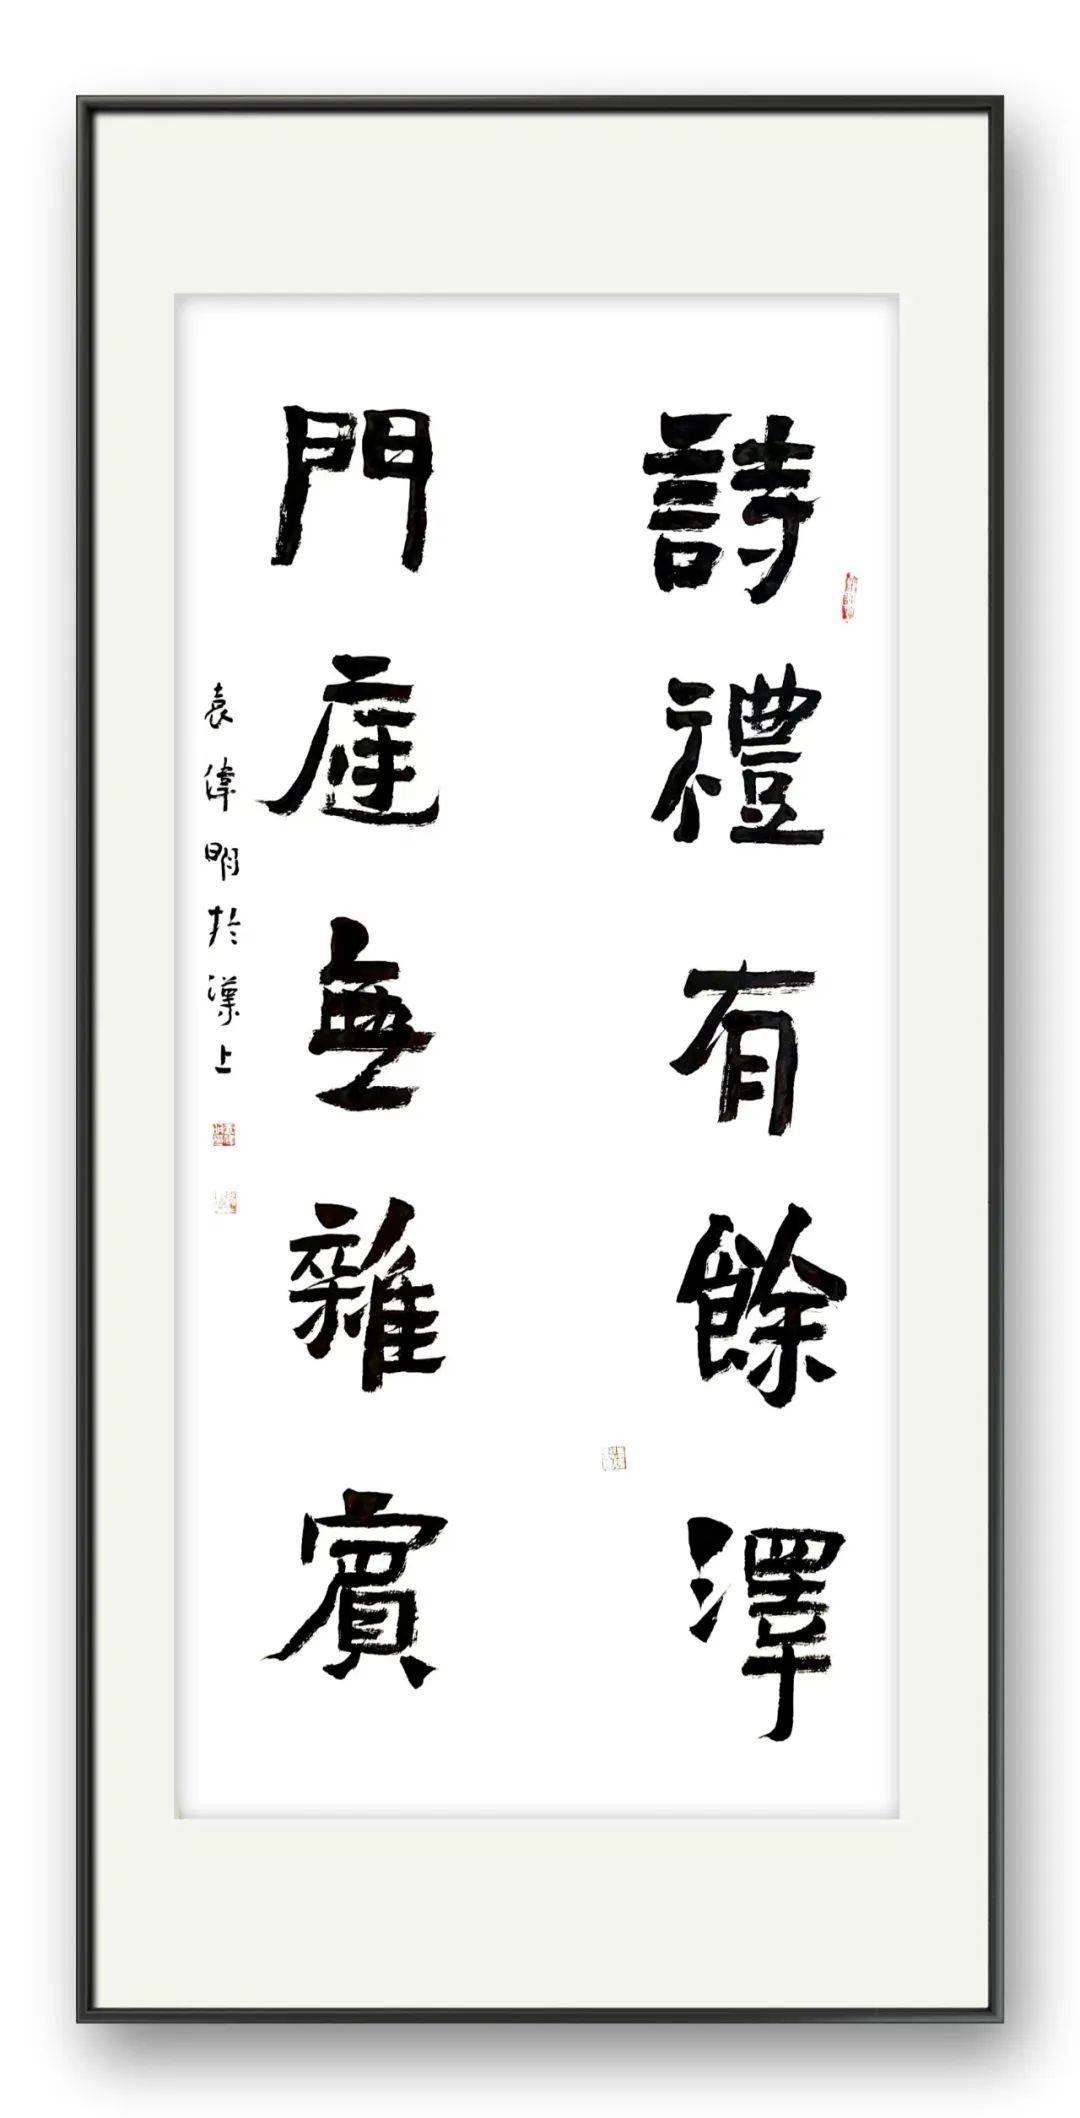 詩禮有餘澤
門庭無雜賓
袁偉明於漢上